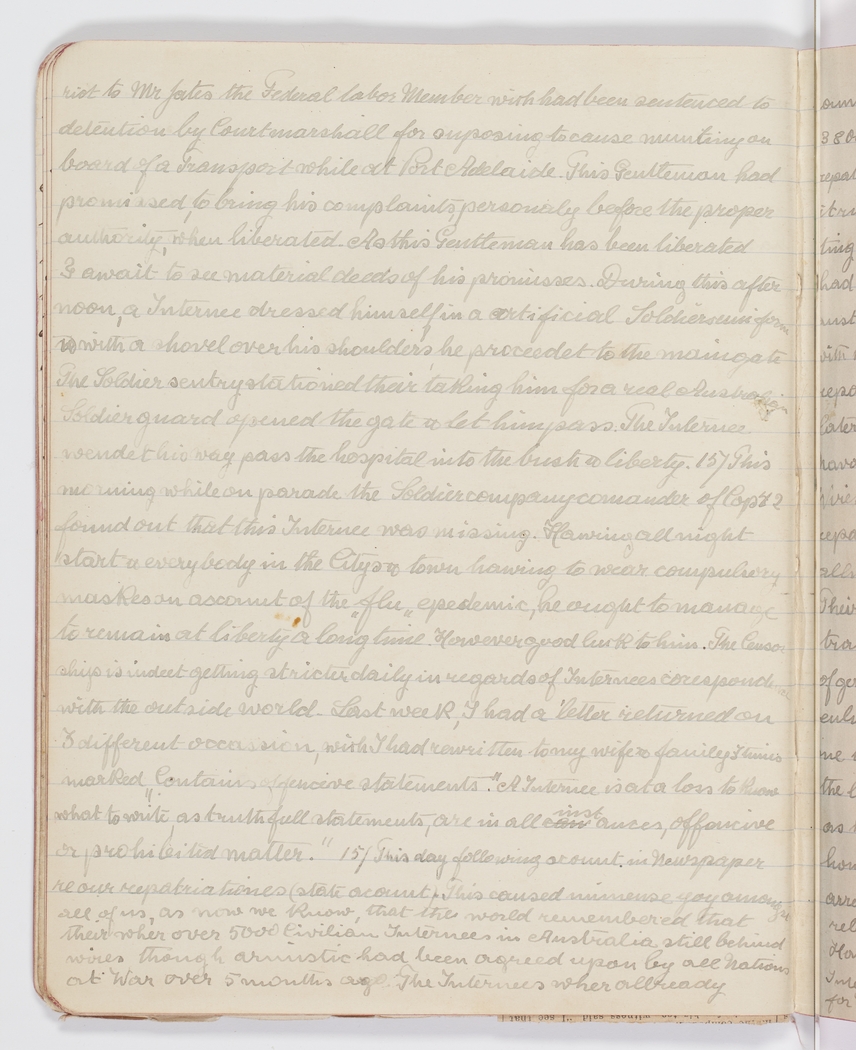 riot to Mr Jates the Federal labor Member wich had been sentenced to
detention by Courtmarshall for suposing to cause munting on
board of a Transport while at Port Adelaide. This Gentleman had
promissed, to bring his complaints, personaly before the proper
authority, when liberated. As this Gentleman has been liberated
I await to see material deeds of his promisses. During this after
noon, a Internee dressed himself, in a artificial Soldiers uniform
with a shovel over his shoulders, he proceedet to the main gate
The Soldier sentry stationed their, taking him for a real Australian
Soldier guard opened the gate & let him pass. The Internee
wendet his way pass the hospital into the bush & liberty. 15/ This
morning while on parade the Soldier company comander of Copt 2
found out that this Internee was missing. Hawing all night
start & every body in the Citys & town hawing to wear compulsory
maskes on account of the "flu" epedemic, he ought to manage
to remain at liberty a long time. However good luck to him. The Censor
ship is indeet getting stricter daily in regards of Internees corespond
with the outside world. Last week, I had a letter returned on
3 different occassion, wich I had rewritten to my wife & family 3 times
marked "Contains offencive statements." A Internee is at a loss to know
what to write, as truthfull statements, are in all inst ances, offencive
or prohibited matter." 15/ This day following acount. in Newspaper
re our repatriationes (state acount). This caused numense yoy amongst
all of us, as now we know, that the world remembered that
their wher over 5000 Civilian Internees in Australia still behind
wires though armistic had been agreed upon by all Nations
at War over 5 months ago. The Internees wher allready